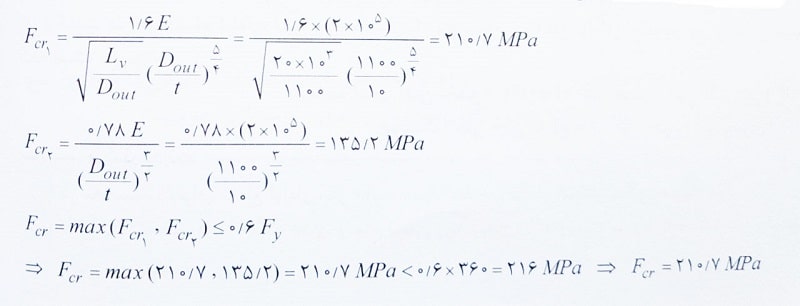 F_cr₁ = ۱/۶ E / (√(L_v / D_out) (D_out / t)^(۵/۴)) = ۱/۶×(۲×۱۰^۵) / (√(۲۰×۱۰^۳ / ۱۱۰۰) (۱۱۰۰ / ۱۰)^(۵/۴)) = ۲۱۰/۷ MPa
F_cr₂ = ۰/۷۸ E / (D_out / t)^(۳/۲) = ۰/۷۸×(۲×۱۰^۵) / (۱۱۰۰ / ۱۰)^(۳/۲) = ۱۳۵/۲ MPa
F_cr = max(F_cr₁ , F_cr₂) ≤ ۰/۶ F_y
⇒ F_cr = max(۲۱۰/۷ , ۱۳۵/۲) = ۲۱۰/۷ MPa < ۰/۶×۳۶۰ = ۲۱۶ MPa ⇒ F_cr = ۲۱۰/۷ MPa